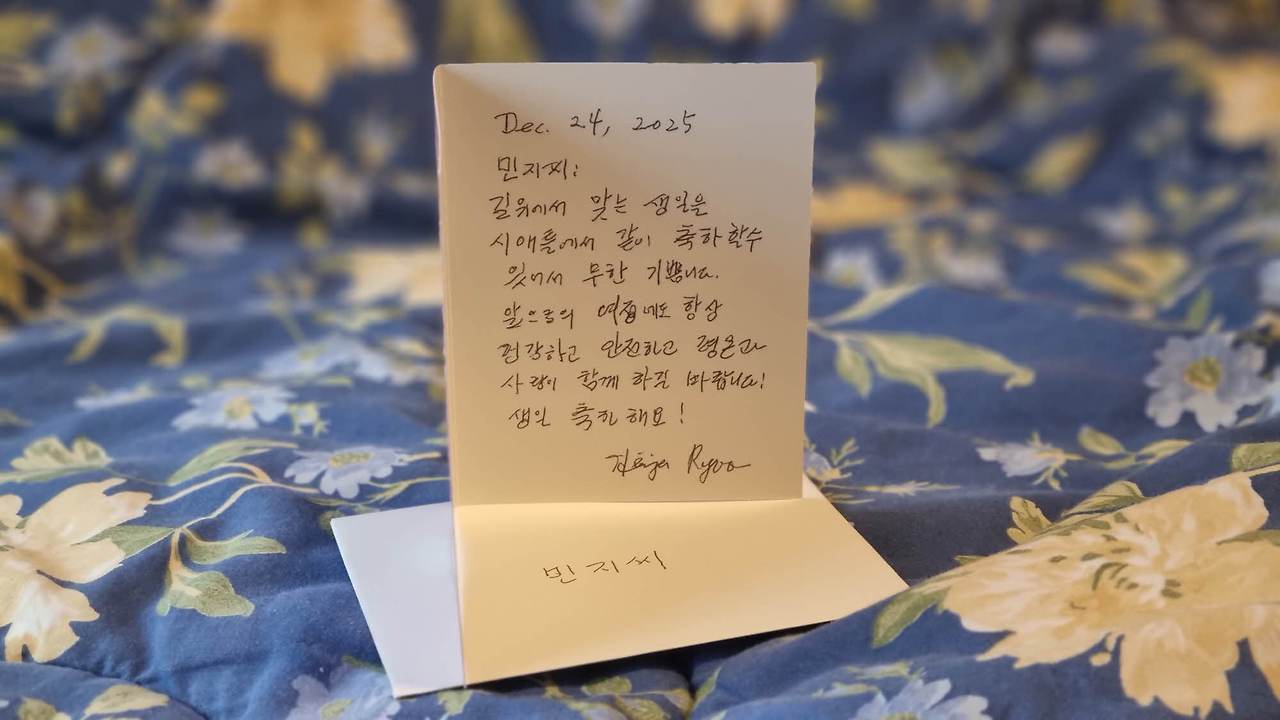 Dec. 24, 2025
민지씨:
길위에서 맞는 생일을
시애틀에서 같이 축하할수
있어서 무한 기쁩니다.
앞으로의 여정에도 항상
건강하고 안전하고 평온과
사랑이 함께 하길 바랍니다!
생일 축하해요!
Ryoo
민지씨